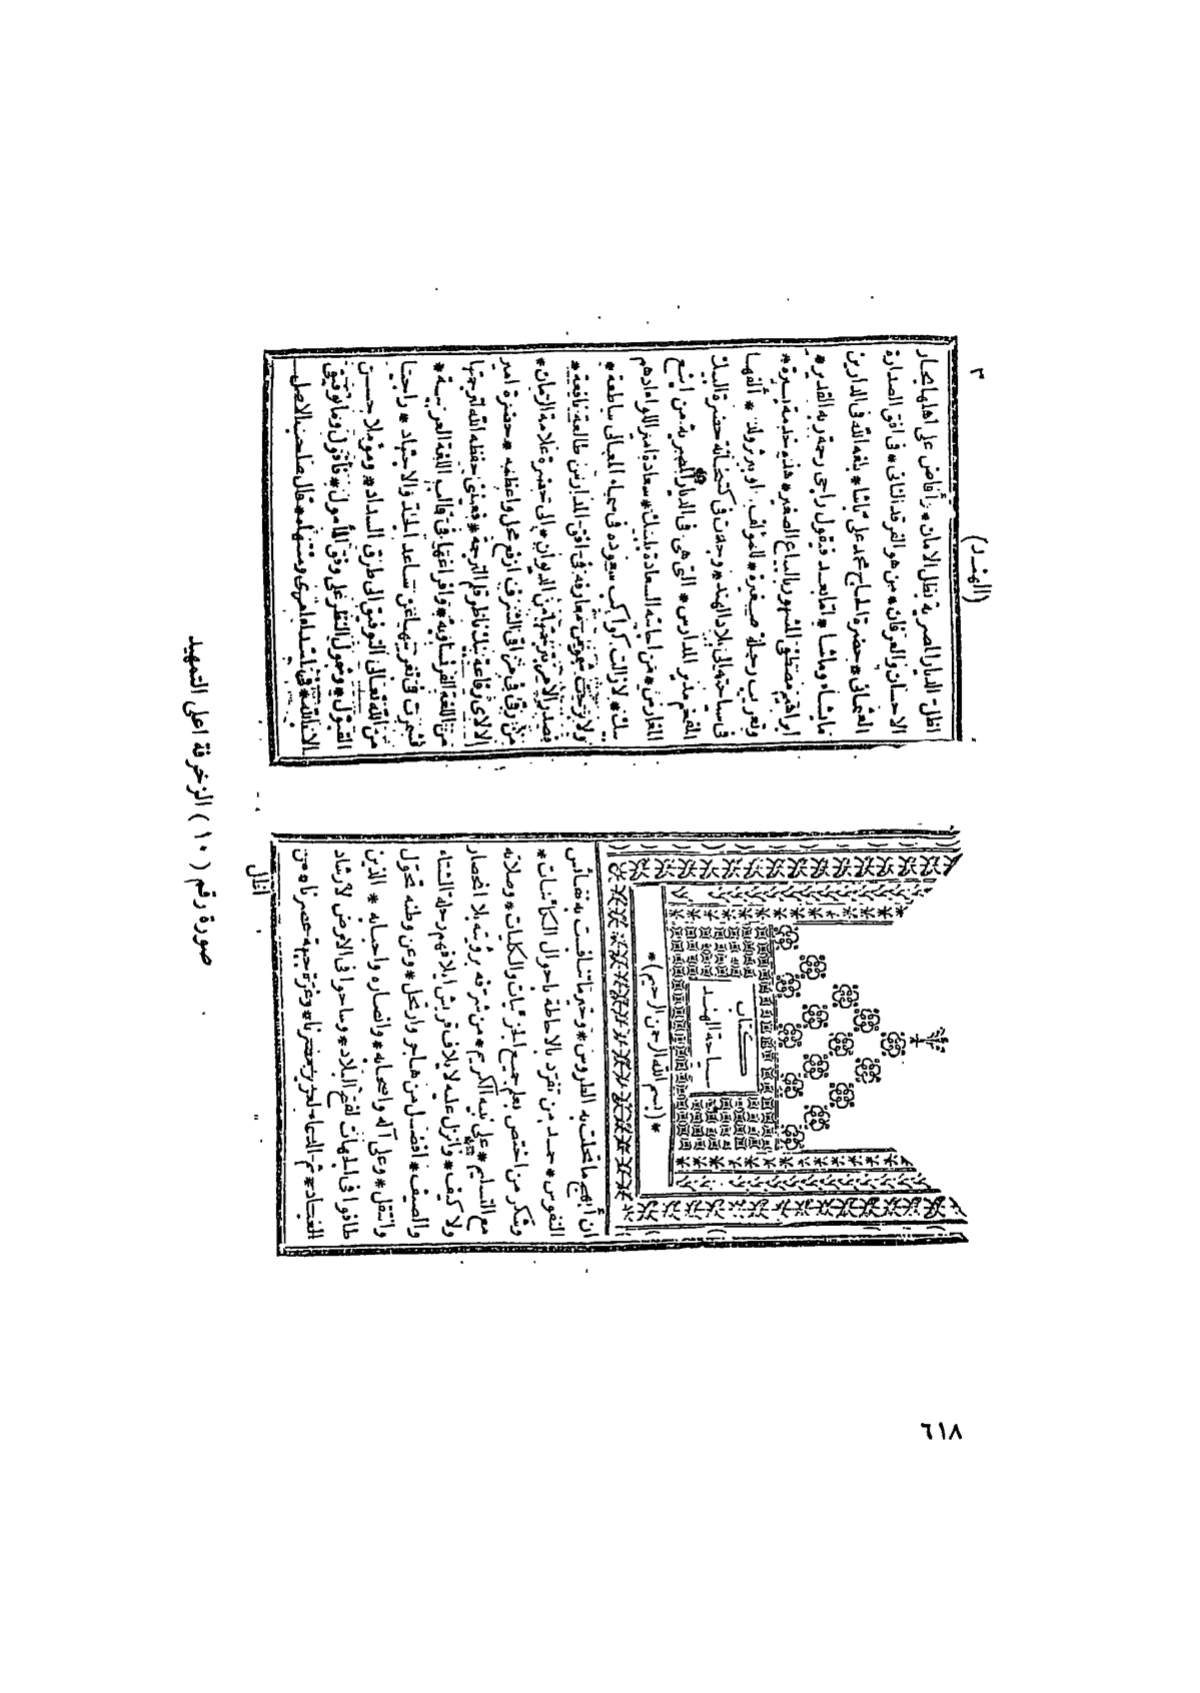 كتاب
سياحة الهند
*(بسم الله الرحمن الرحيم)*
ان أبهج ما تحلت به الطروس * وخير ما تنافست به نفائس
النفوس * حمد من تفرد بالاحاطة باحوال الكائنات *
وشكر من اختص بعلم جميع الجزئيات والكليات * وصلاته
مع التسليم * على نبيه الكريم * من شرفه برؤيته بلا انحصار
ولا كيف * وانزل عليه لايلاف قريش ايلافهم رحلة الشتاء
والصيف * افضل من هاجر وارتحل * وعن وطنه تحول
وانتقل * وعلى آله واصحابه * وانصاره واحبابه * الذين
طافوا فى الجهات لفتح البلاد * وساحوا فى الارض لارشاد
العباد * ثم الدعاء
اظل
(الهند)
٣
اظل الديار المصرية بظل الامان * وأفاض على اهلها بحار
الاحسان والعرفان * من هو الفرقد الثانى * فى افق الصدارة
العثمانى * حضرة الحاج محمد على باشا * بلغه الله فى الدارين
ما يشاء وما شا * امابعد فيقول راجى رحمة ربه القدير *
ابراهيم مصطفى المشهور بالبياع الصغير * هذه خدمة يسيرة *
وتعريب رحلة صغيرة * للمؤلف اوبير ثرولد * ألفها
فى سياحته الى بلاد الهند * وجدت فى كتبخانة حضرة البيك
المفخم مدير المدارس * التى هى فى الديار المصرية من ابدع
المغارس * من اجابته السعادة بلبيك * سعادة امير اللوا ادهم
بيك * لا زالت كواكب سعوده فى سماء المعالى ساطعة *
ولا برحت شموس معارفه فى افق المدارس طالعة نافعة *
فصدر الامر بترجمتها من الديوان * الى حضرة علامة الزمان *
من رقى فى مراقى الشرف ارفع محل واعظمه * حضرة امير
الالاى رفاعه بيك ناظر قلم الترجمة * فعيننى حفظه الله لترجمتها
من اللغة الفرنساوية * وافراغها فى قالب اللغة العربية *
فشمرت فى تعريبها عن ساعد الجد والاجتهاد * راجيا
من الله تعالى التوفيق الى طرق السداد * ومؤملا حسن
القبول * وشمول النظر على وفق المأمول * فأقول وما توفيقى
الا بالله * فى ابتداء امرى ومنتهاه * قال صاحب الاصل
صورة رقم (١٠) الزخرفة اعلى التمهيد
٦١٨